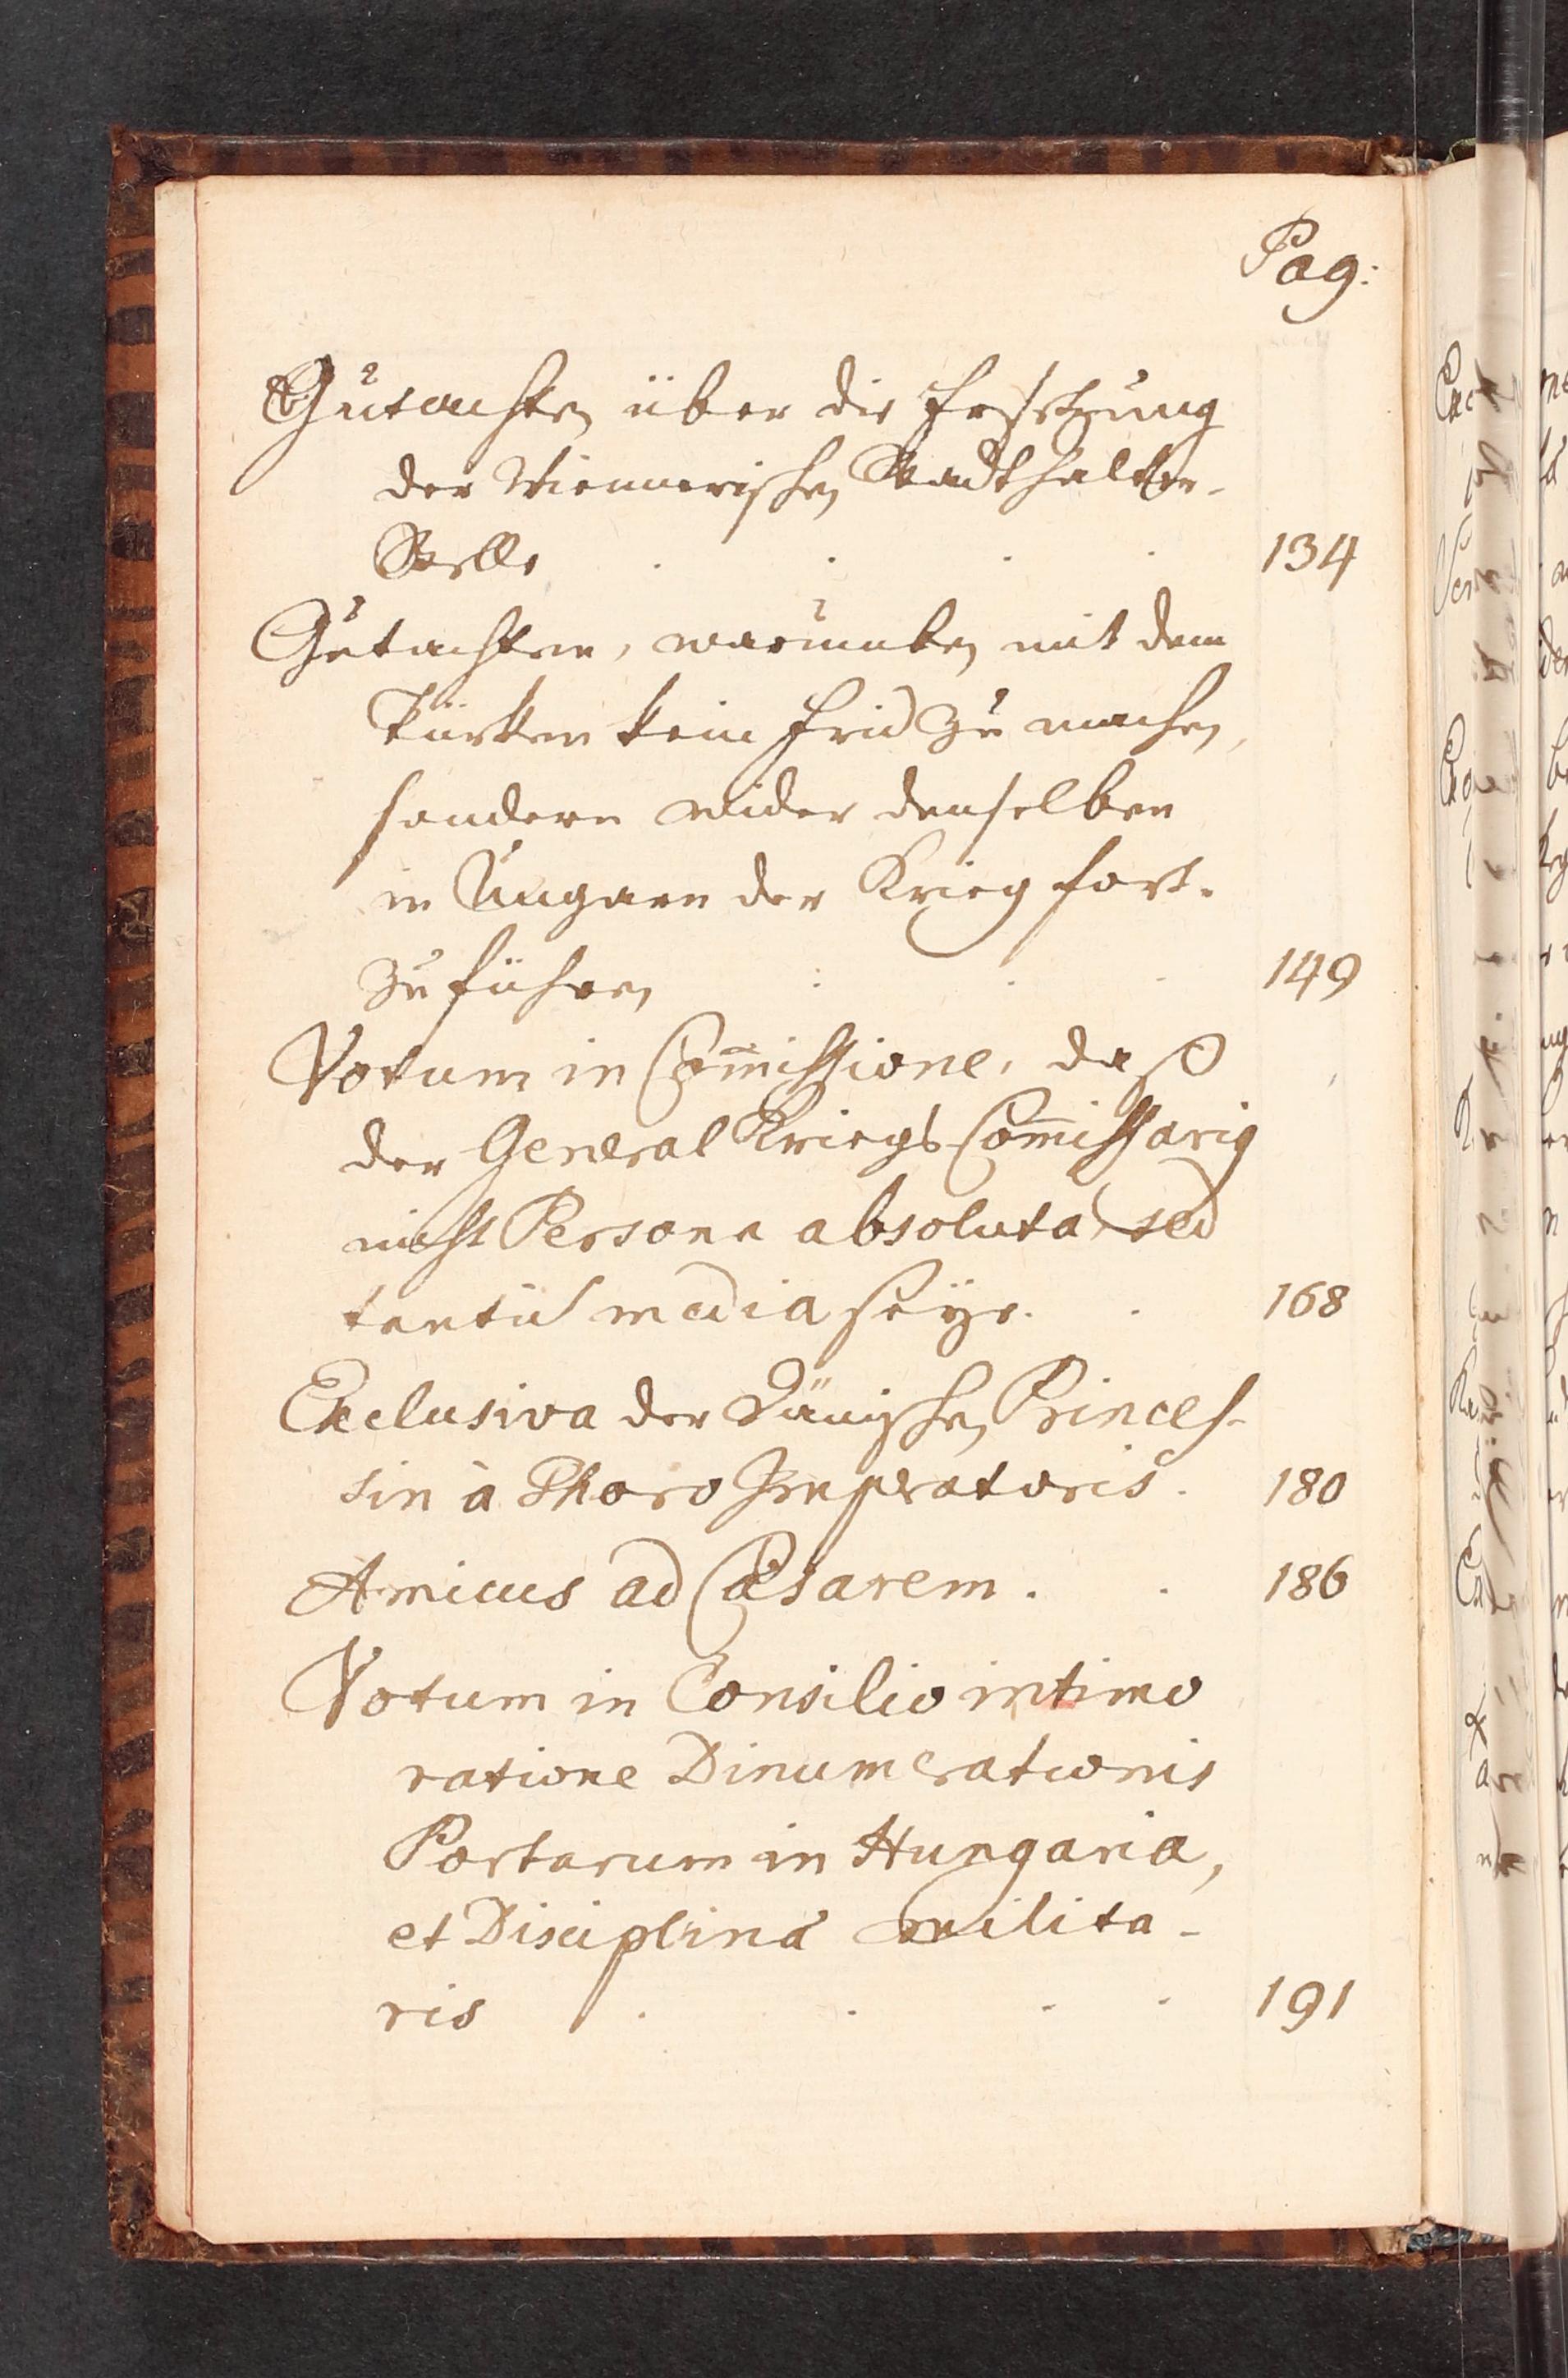 Pag:
Gutachten über die Ersetzung
der Wiennerischen Stadthalter-
Stelle . . . . 134
Gutachten, warumben mit dem
Türken kein Frid zu machen,
sondern wider denselben
in Ungarn der Krieg fort-
zuführen . . . 149
Votum in Com̄issione, daß
der General Kriegs Com̄issarig
nicht Persona absoluta, sed
tantū media seye. . 168
Exclusiva der Dänischen Princes-
sin à Thoro Imperatoris. 180
Amicus ad Cæsarem. . 186
Votum in Consilio intimo
ratione Dinumerationis
Portarum in Hungaria,
et Disciplinâ milita-
ris . . . . 191